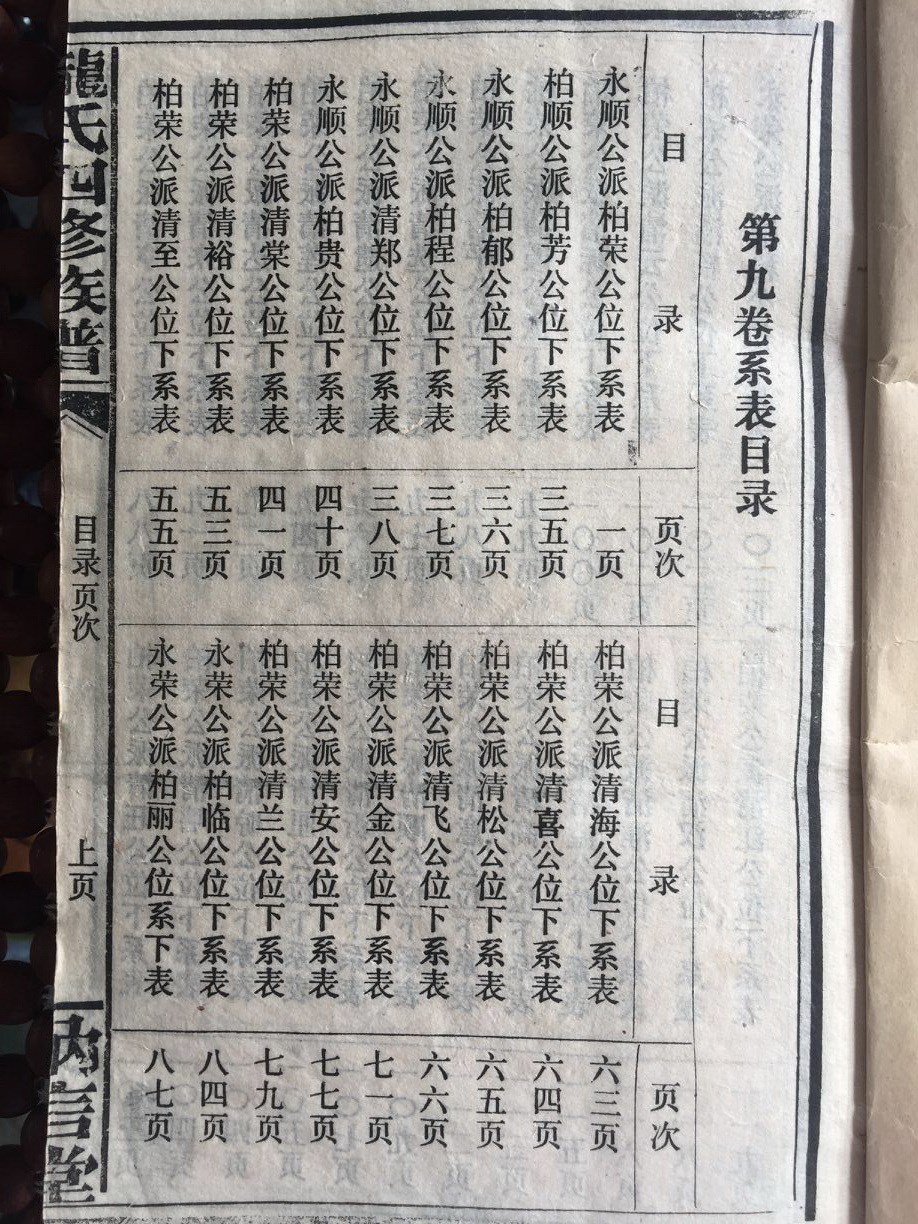 第九卷系表目录
目录
永顺公派柏荣公位下系表
柏顺公派柏芳公位下系表
永顺公派柏郁公位下系表
永顺公派柏程公位下系表
永顺公派清郑公位下系表
永顺公派柏贵公位下系表
柏荣公派清棠公位下系表
柏荣公派清裕公位下系表
柏荣公派清至公位下系表
页次
一页
三五页
三六页
三七页
三八页
四十页
四一页
五三页
五五页
目录
柏荣公派清海公位下系表
柏荣公派清喜公位下系表
柏荣公派清松公位下系表
柏荣公派清飞公位下系表
柏荣公派清金公位下系表
柏荣公派清安公位下系表
柏荣公派清兰公位下系表
永荣公派柏临公位下系表
永荣公派柏丽公位系下表
页次
六三页
六四页
六五页
六六页
七一页
七七页
七九页
八四页
八七页
龍氏四修族普
目录页次
上页
纳言堂